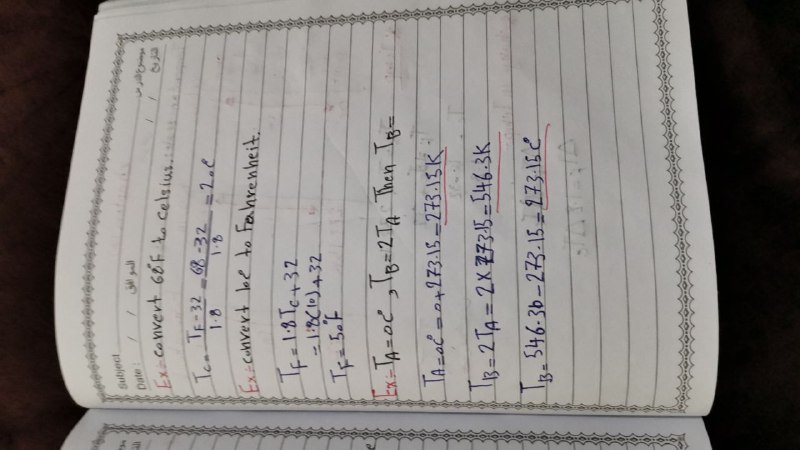 Subject
موضوع الدرس
Date : / / الموافق / / التاريخ
Ex:- convert 68°F to celsius.
Tc = TF-32/1.8 = 68-32/1.8 = 20c°
Ex:- convert 10c° to Fahrenheit.
TF = 1.8Tc + 32
= 1.8(10) + 32
TF = 50°F
Ex:- TA = 0c°, TB = 2TA Then TB =
TA = 0c° = 0 + 273.15 = 273.15K
TB = 2TA = 2 x 273.15 = 546.3K
TB = 546.30 - 273.15 = 273.15c°